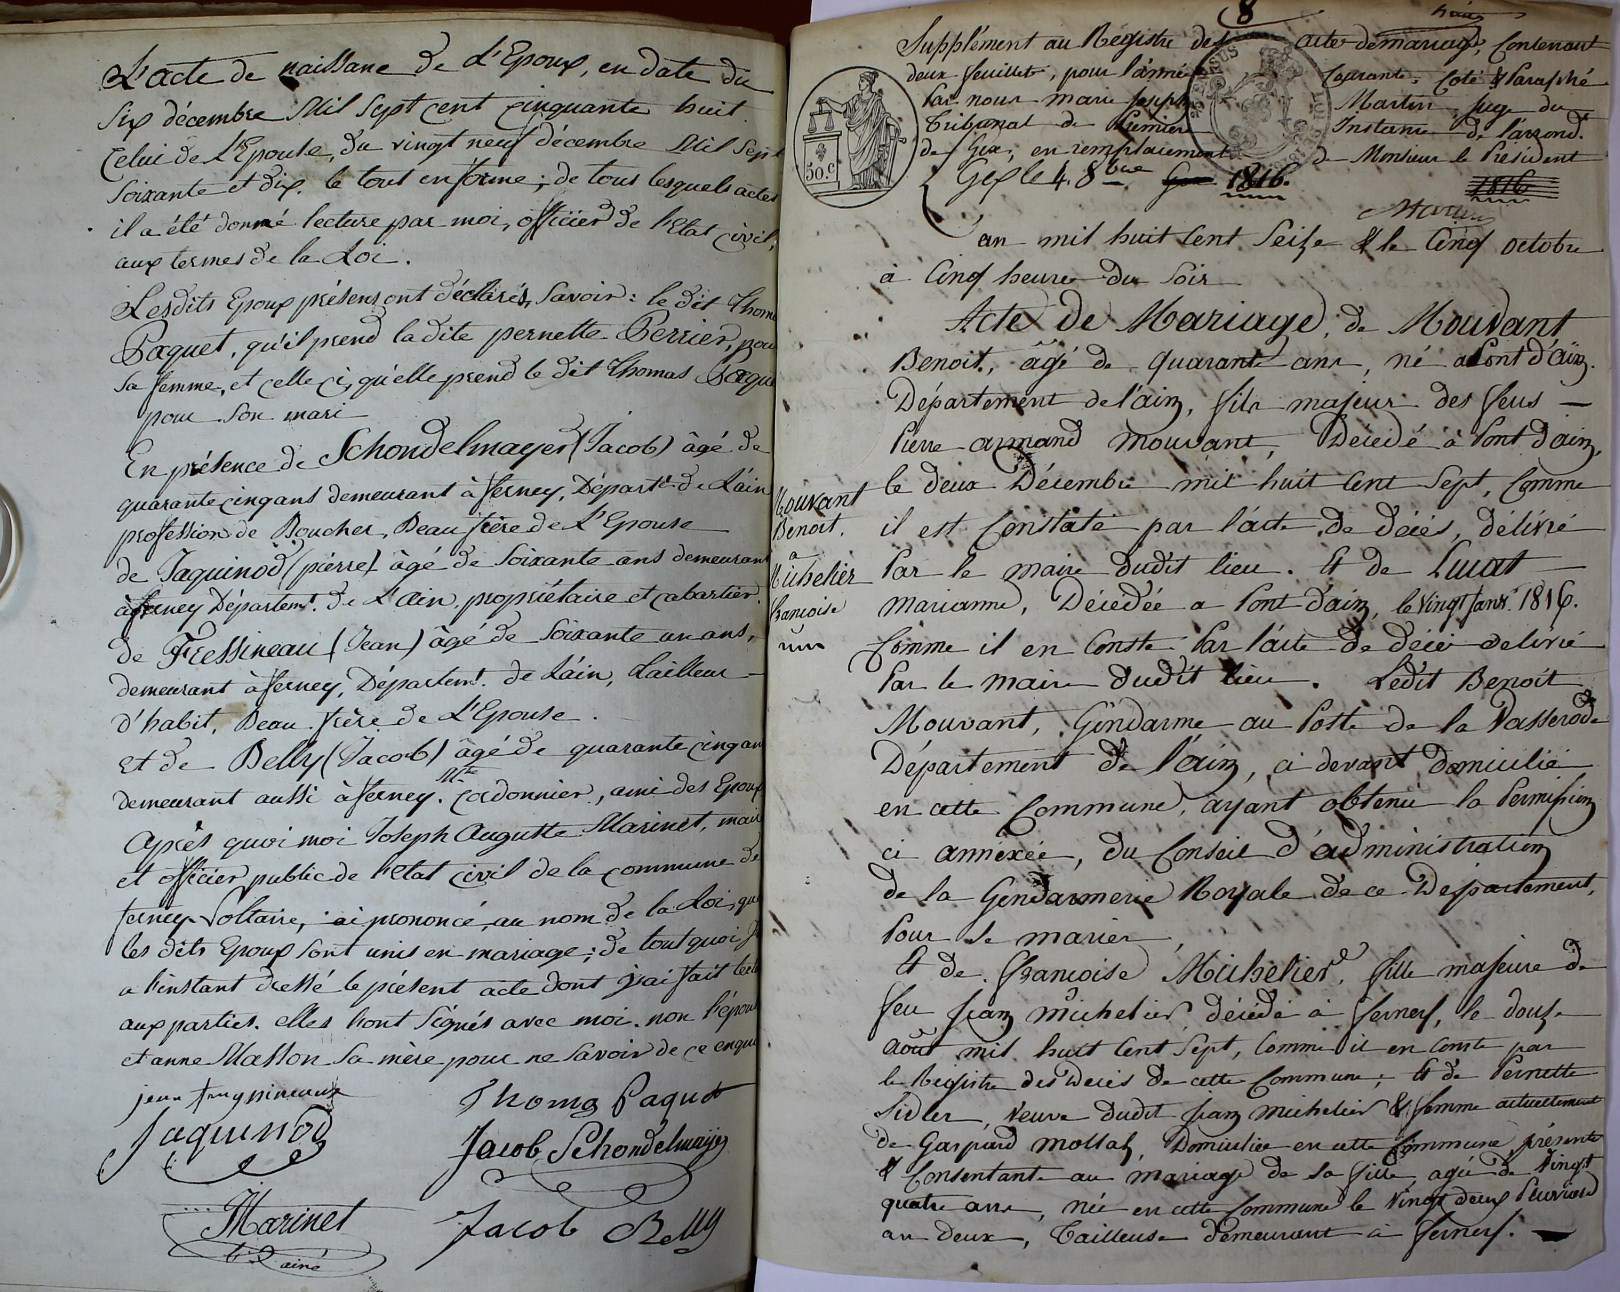 L'acte de naissane de L'Epoux, en date du
six décembre Mil sept cent cinquante huit.
Celui de L'Epouse, du vingt neuf décembre Mil Sept
soixante et dix. le tout en forme; de tous lesquels actes
il a été donné lecture par moi, officier de l'Etat civil,
aux termes de la Loi.
Lesdits Epoux présens ont déclarés, Savoir: le dit Thom
Paquet, qu'il prend ladite pernette Perrier, pour
sa femme, et celle ci, qu'elle prend le dit Thomas Paque
pour son mari
En présence de Schondelmayer (Jacob) âgé de
quarante cinq ans demeurant à ferney, Départt. de L'ain
profession de Boucher, Beau frère de L'Epouse
de Jaquinod (pierre) âgé de soixante ans demeurant
à ferney Départemt. de L'ain, propriétaire et cabartier.
de Fressineau (Jean) âgé de soixante un ans,
demeurant à ferney, Départemt. de L'ain, tailleur
d'habit, Beau frère de L'Epouse.
et de Belly (Jacob) âgé de quarante cinq an
demeurant aussi à ferney. Me. cordonnier, ami des Epoux
Après quoi moi Joseph Auguste Marinet, mair
et officier public de l'Etat civil de la commune de
ferney-Voltaire, ai prononcé, au nom de la Loi, que
les dits Epoux sont unis en mariage; de tout quoi J'
a l'instant dressé le présent acte dont j'ai fait lect
aux parties. elles l'ont signés avec moi. non l'épou
et anne Masson sa mère pour ne savoir de ce enqui
jean
Thoma Paquet
Jaquinod
Jacob Schondelmaijer
Marinet
L'ainé
Jacob Belly
8
Supplément au Régistre des acte de mariage, Contenant
deux feuillets, pour l'année Courante. Coté & Paraphé
Par nous marie Joseph Martin juge du
Tribunal de Premier Instance de l'arrond.
de Gex, en remplacement de Monsieur le Président
Gex le 4. 8bre 1816.
1816
Martin
50.c
an mil huit Cent Seize & le Cinq octobre
à Cinq heures du Soir
Acte de Mariage, de Mouvant
Benoit, âgé de quarante ans, né a Pont d'ain.
Département de l'ain, fils majeur des feus
Pierre armand mouvant, Décédé à Pont d'ain,
le deux Décembre mil huit Cent Sept, Comme
il est Constaté par l'acte de décés, délivré
Par le maire dudit lieu. Et de Luiat
marianne, Décédée a Pont d'ain, le vingt Janvr. 1816.
Comme il en Conste Par l'acte de décés delivré
Par le maire dudit lieu. Ledit Benoit
Mouvant, Gendarme au Poste de la Vasserode
Département de l'ain, ci devant domicilié
en cette Commune, ayant obtenu la Permission
ci annexée, du Conseil d'administration
de la Gendarmerie Royale de ce Département,
Pour se marier
Et de Francoise Michelier, fille majeure de
feu jean michelier, décédé à ferney, le douze
août mil huit Cent Sept, Comme il en Conste par
le Régistre des Decés de cette Commune; Et de Pernette
Sidler, veuve dudit jean michelier & femme actuellement
de Gaspard mossat, Domiciliée en cette Commune présente
& Consentante au mariage de sa fille, agée de Vingt
quatre ans, née en cette Commune le Vingt deux Pluviose
an deux, Tailleuse demeurant à Ferney.
Mouvant
Benoit.
a
Michelier
francoise